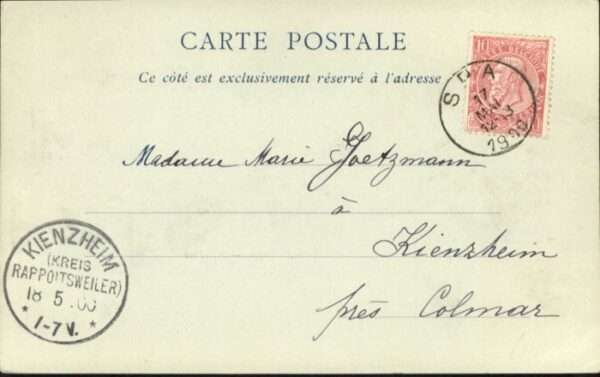 CARTE POSTALE
Ce côté est exclusivement réservé à l'adresse
10
SPA
17
MAI
1900
Madame Marie Goetzmann
à
Kienzheim
près Colmar
KIENZHEIM
(KREIS
RAPPOITSWEILER)
18 5 00
* 1-7 V. *